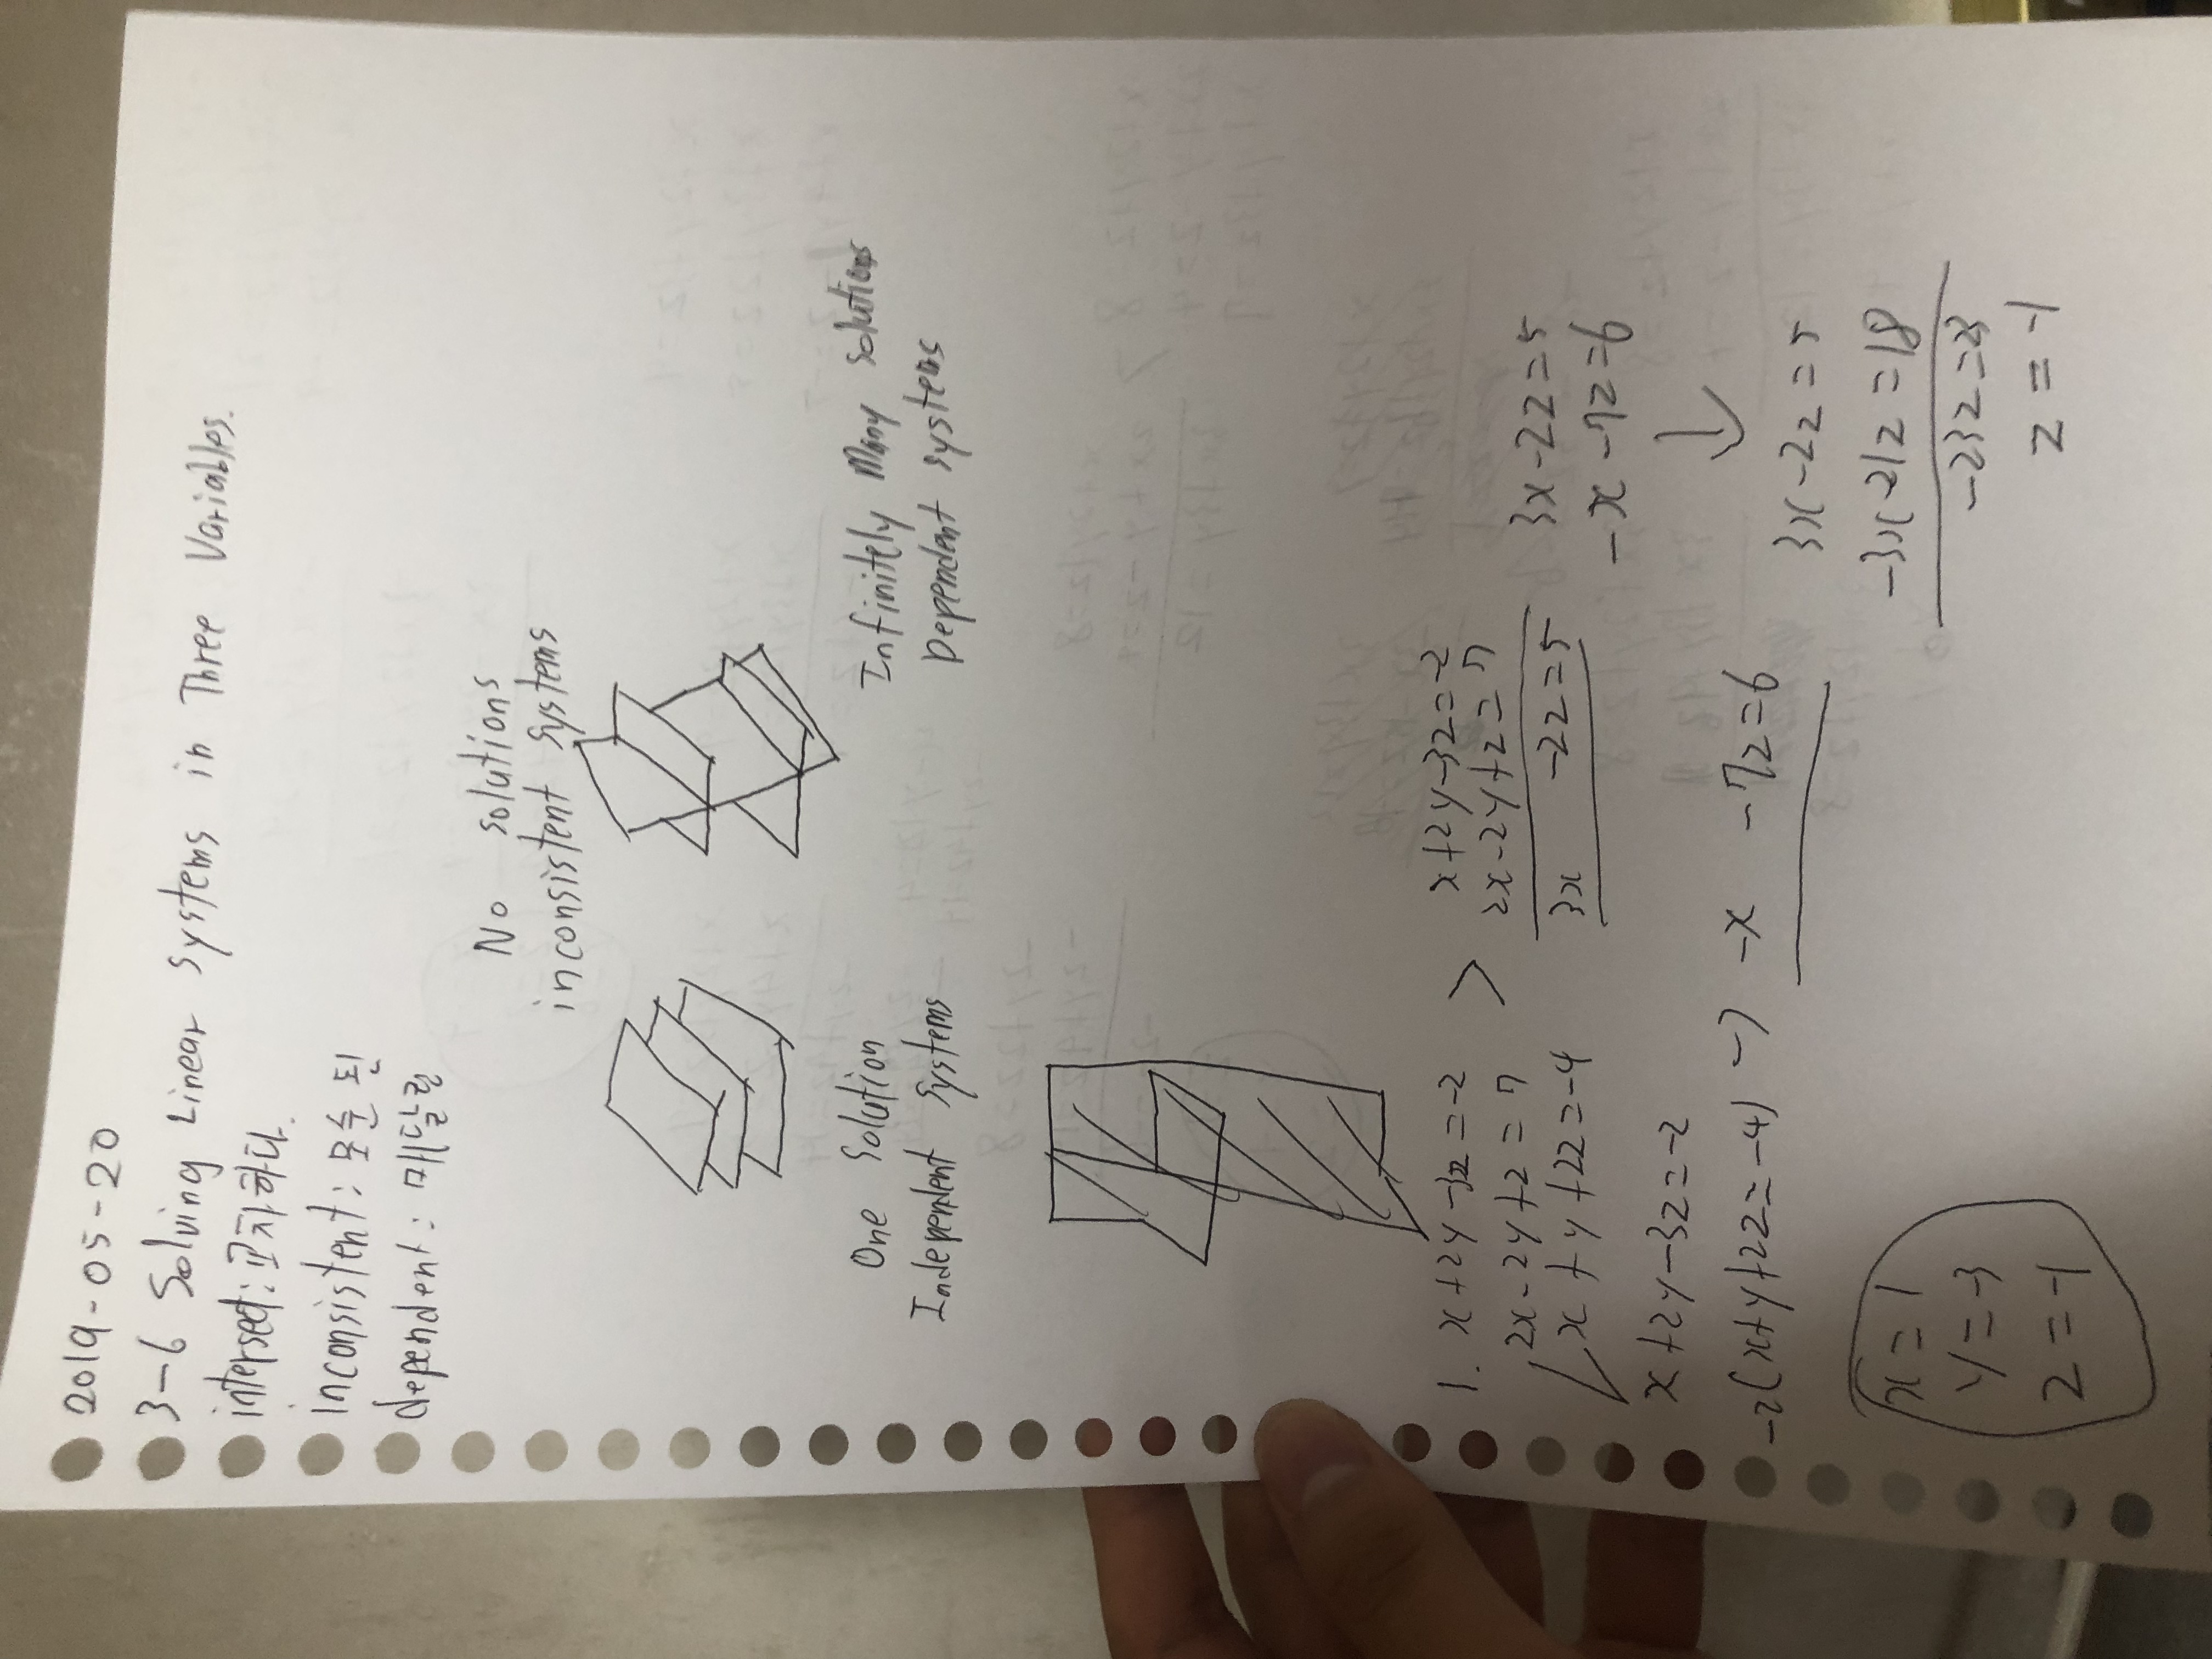 2019-05-20
3-6 Solving Linear systems in Three Variables.
intersect: 교차하다.
inconsistent: 모순 된
dependent: 매달림
No solutions
inconsistent systems
One solution
Independent systems
Infinitely Many solutions
Dependent systems
1. x+2y-3z=-2
2x-2y+z=7
x+y+2z=-4
>
x+2y-3z=-2
2x-2y+z=7
3x -2z=5
3x-2z=5
-x-7z=6
x+2y-3z=-2
-2(x+y+2z=-4) → -x -7z=6
↓
3x-2z=5
-3x-21z=18
-23z=23
z=-1
x=1
y=-3
z=-1